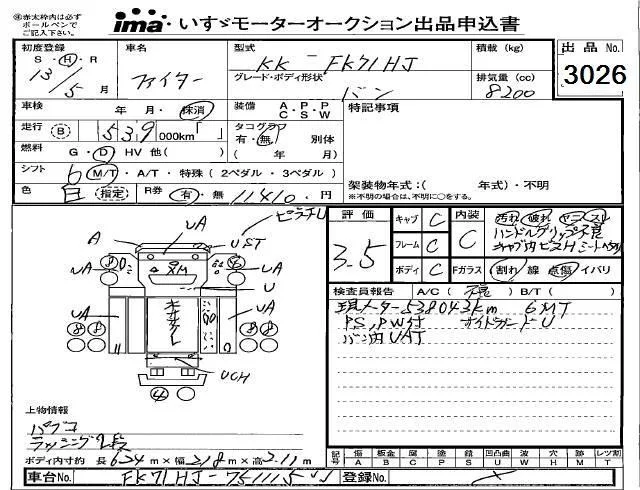 ④赤太枠内は必ず
ボールペンで
ご記入下さい。
ima いすゞモーターオークション出品申込書
初度登録 車名 型式 積載 (kg) 出品 No.
S・H・R ファイター KK-FK71HJ 3026
13/5月 グレード・ボディ形状 排気量 (cc)
バン 8200
車検 年 月・抹消 装備 A・P・P C S W 特記事項
走行 B 539000km「 」 タコグラフ 有・無 別体
燃料 G・D HV 他( ) ( 年 月)
シフト 6 M/T・A/T・特殊(2ペダル・3ペダル) 架装物年式:( 年式)・不明
色 白 指定 R券 有・無 11410円 ※不明の場合は、不明に○をする。
ピラーU
A UA UST
UA UA
U
UA UA
UCH
4
評価 3.5
キャブ C 内装 C 汚れ 破れ ヤニ・スレ
フレーム C ハンドルグリップ不良
ボディ C Fガラス 割れ 線 点傷 イバリ
検査員報告 A/C( ) B/T( )
現メーター538043km 6MT
PS,PW付 サイドガードU
バン内UAT
上物情報
パブコ
ラッシング2段
ボディ内寸約 長624m×幅218m×高211m
記号 傷 板金 腐 塗 錆 凹凸曲 波 穴 跡 レンズ割
A B C P S U W H M T
車台No. FK71HJ-751115 登録No.